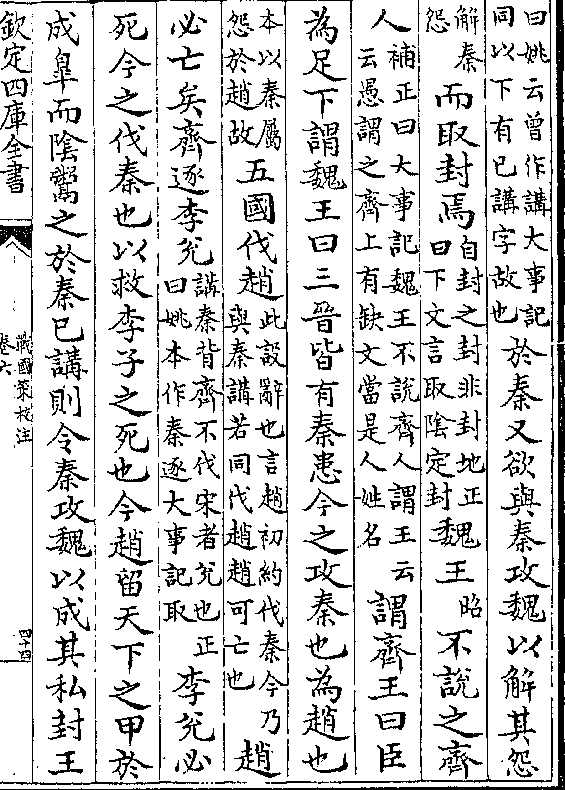 曰姚云曾作講大事記同以下有已講字故也於秦又欲與秦攻魏以解其怨
解秦怨而取封焉自封之封非封地正曰下文言取陰定封魏王昭不說之齊
人補正曰大事記魏王不說齊人謂王云云愚謂之齊上有缺文當是人姓名謂齊王曰臣
為足下謂魏王曰三晉皆有秦患今之攻秦也為趙也
本以秦屬怨於趙故五國伐趙此設辭也言趙初約伐秦今乃與秦講若同伐趙趙可亡也趙
必亡矣齊逐李兊講秦背齊不伐宋者兊也正曰姚本作秦逐大事記取李兊必
死今之伐秦也以救李子之死也今趙留天下之甲於
成皐而陰鬻之於秦已講則令秦攻魏以成其私封王
欽定四庫全書
戰國策校注
卷六
四十四